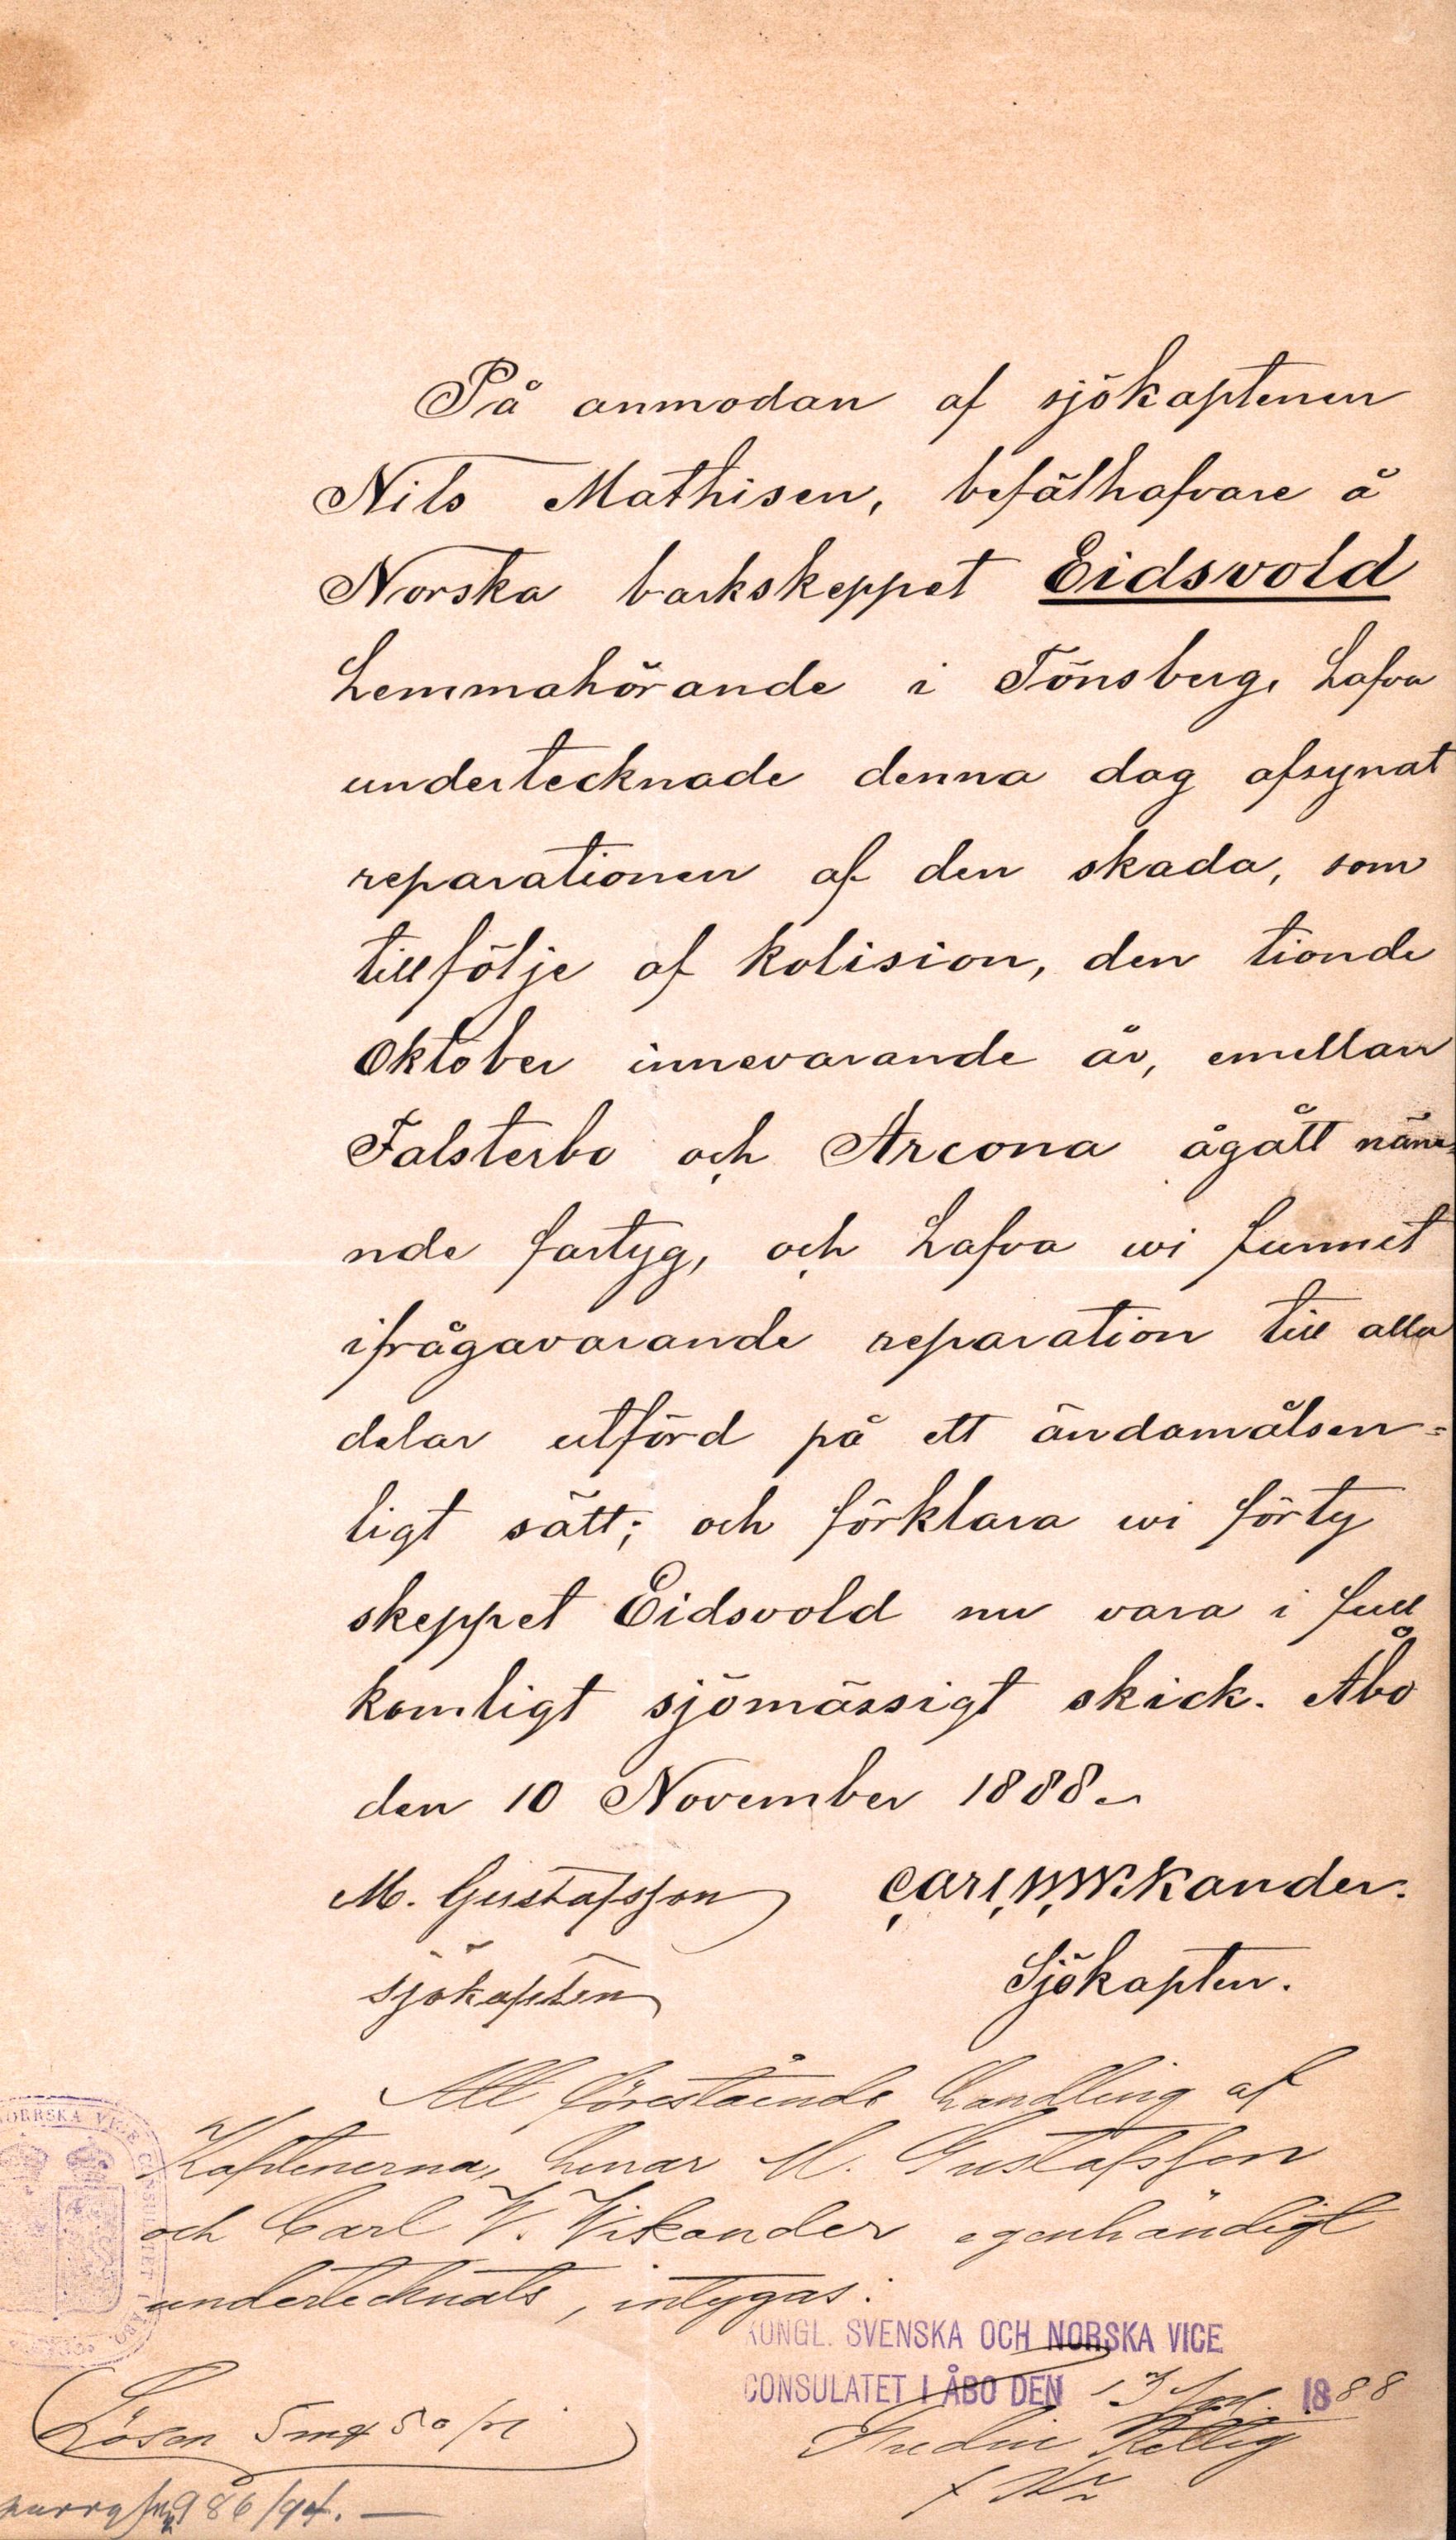 På anmodan af sjökaptenen
Nils Mathisen, befälhafvare å
Norska barkskeppet Eidsvold
hemmahörande i Tönsberg, hafva
undertecknade denna dag afsynat
reparationen af den skada, som
tillfölje af kolision, den tionde
Oktober innevarande år, emellan
Falsterbo och Arcona ågått näm-
nde fartyg, och hafva wi funnit
ifrågavarande reparation till alla
delar utförd på ett ändamålsen=
ligt sätt; och förklara wi förty
skeppet Eidsvold nu vara i full
komligt sjömässigt skick. Åbo
den 10 November 1888.
M. Gustafsson Carl W. Wikander.
sjökapten Sjökapten.
Att förestående handling af
Kaptenerna, herrar M. Gustafsson
och Carl W. Wikander egenhändigt
undertecknats, intygas:
KONGL. SVENSKA OCH NORSKA VICE
CONSULATET I ÅBO DEN 13 Nov. 1888
Fredric Rettig
Lösen 5 mk 50 pi
986/94.
NORRSKA VICE CONSULATET I ÅBO